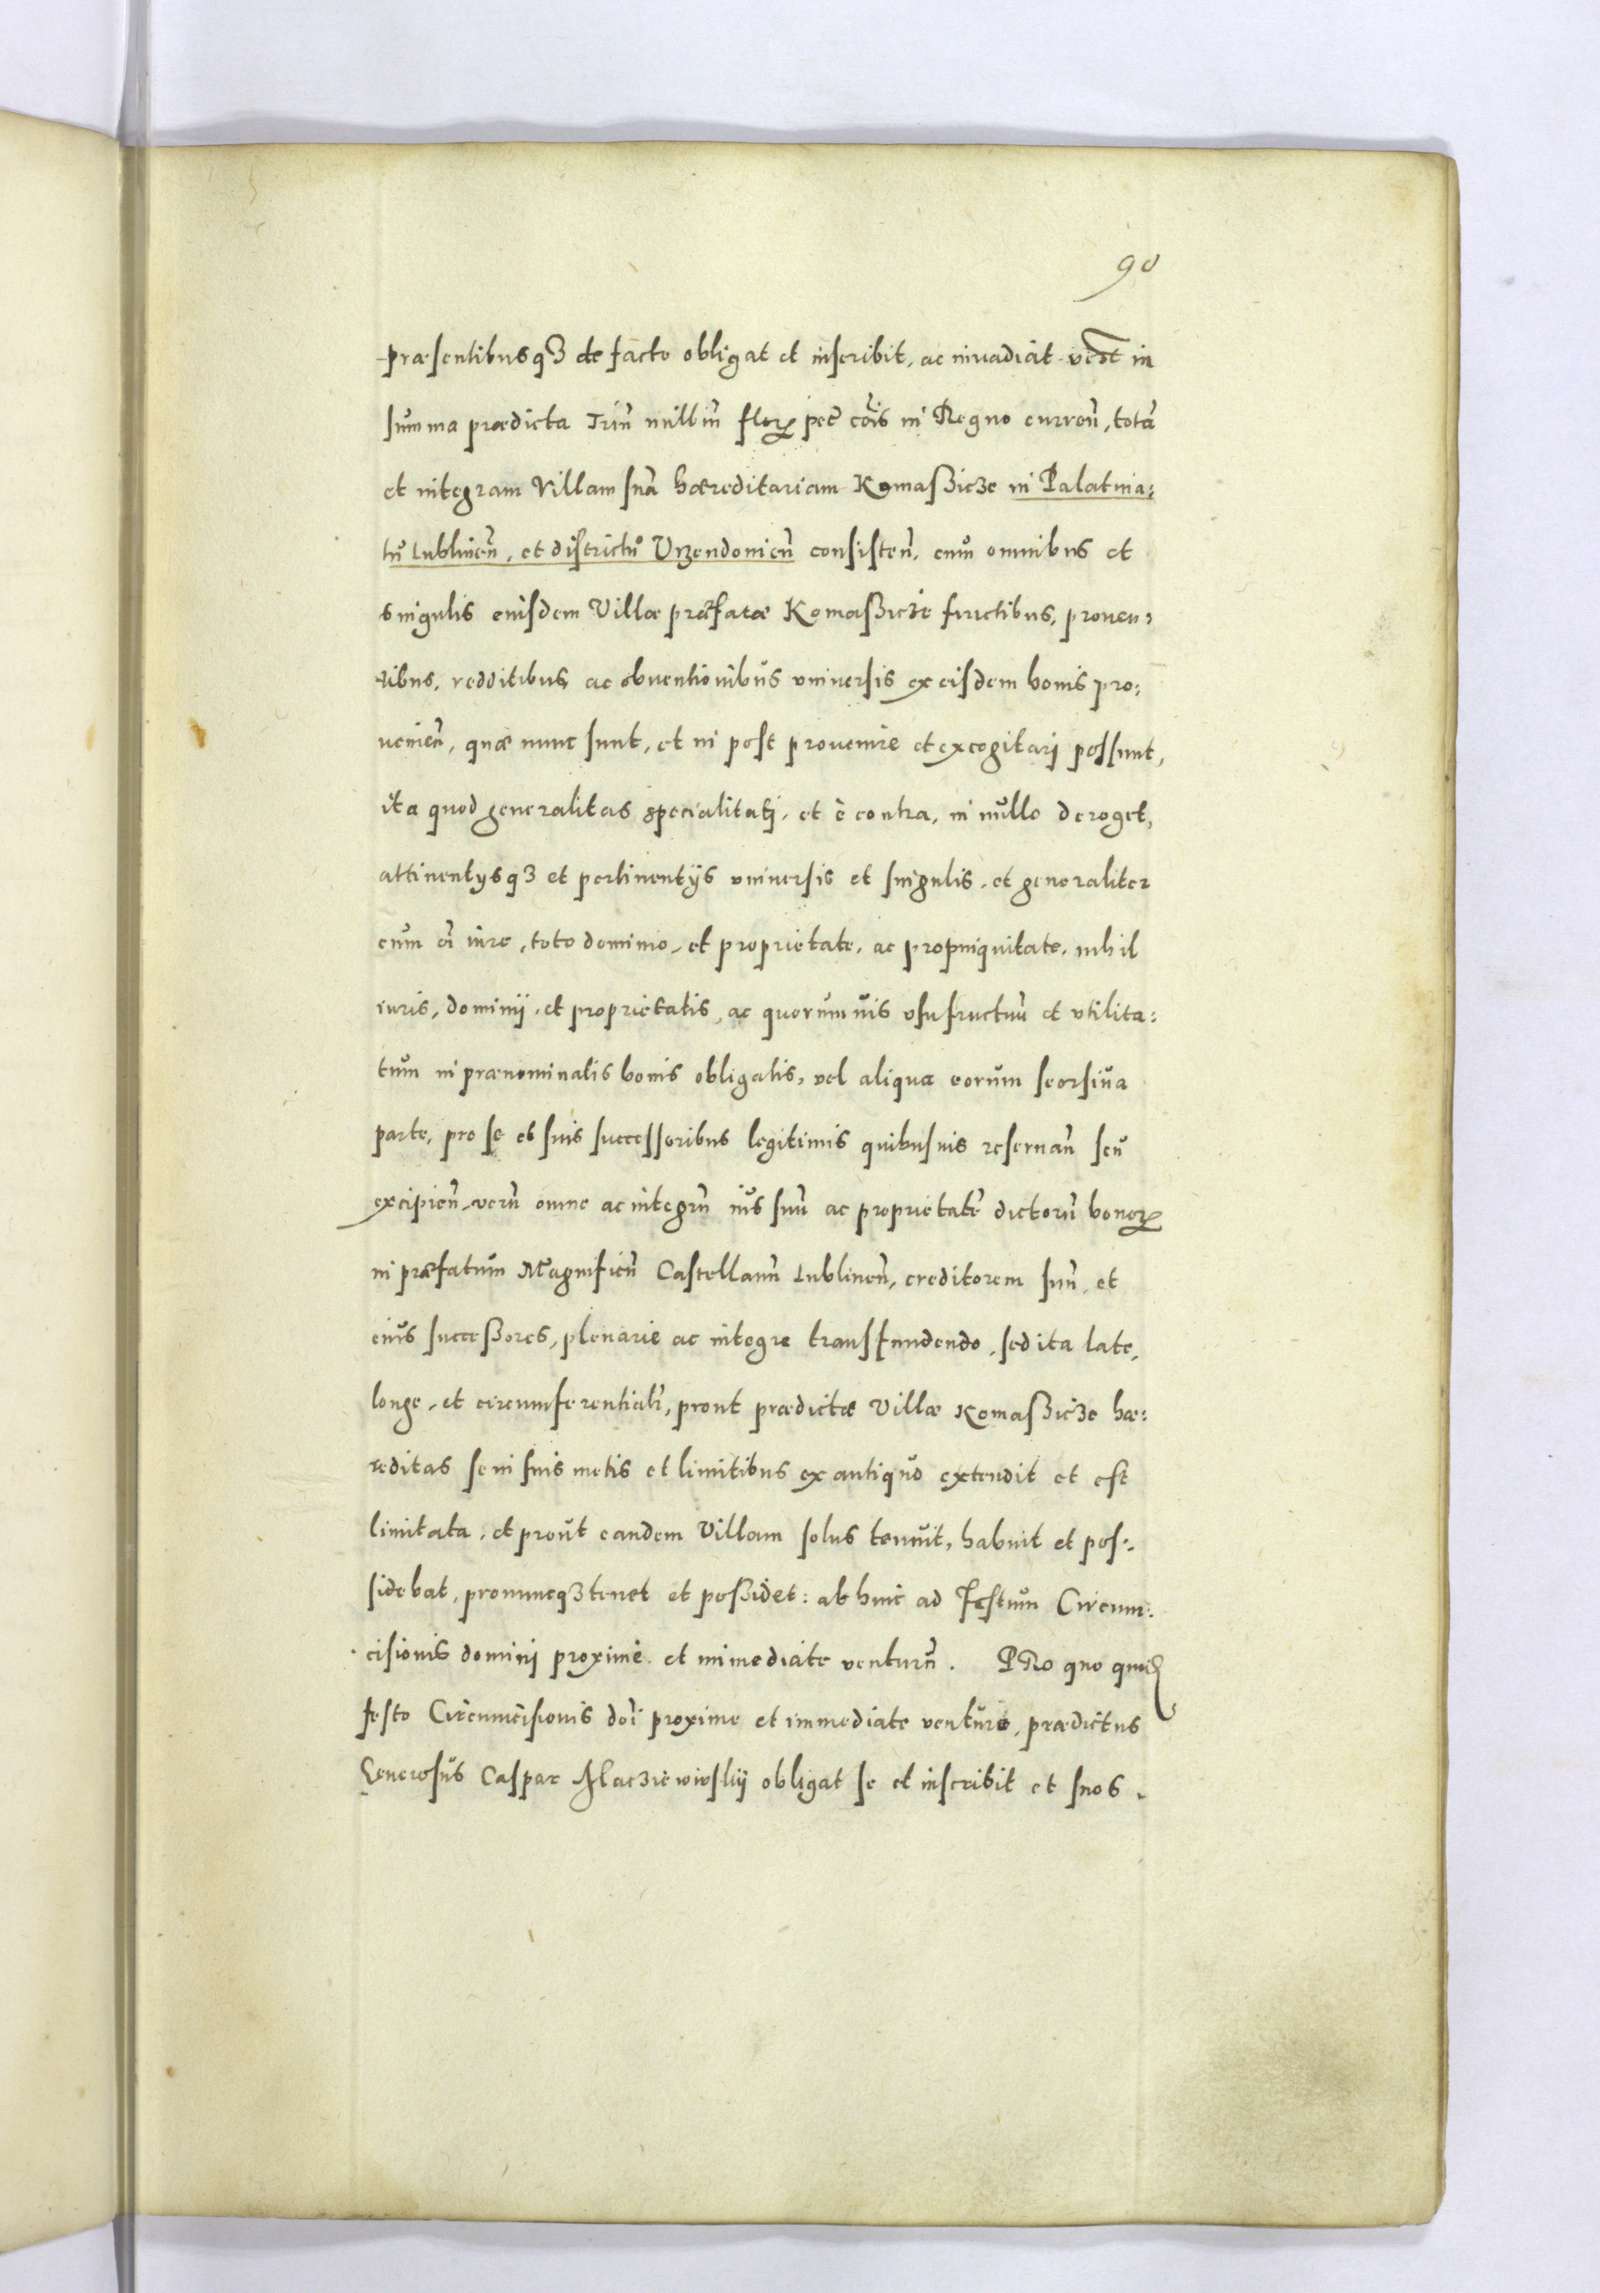 90
præsentibusqꝫ de facto obligat et inscribit, ac inuadiat in
summa prædicta Triū milliū florꝝ pec̄ cōis in Regno curreñ, totā
et integram Villam suā hæreditariam Komaßicze in Palatina:
tu Lublineñ, et districtu Vrzendouieñ consisteñ, cum omnibus et
singulis eiusdem Villæ præfatæ Komaßicze fructibus, prouen:
tibus, redditibus, ac obuentionibus vniuersis ex eisdem bonis pro:
uenieñ, quæ nunc sunt, et in post prouenire et excogitarj possunt,
ita quod generalitas specialitatj, et è contra, in nullo deroget,
attinentijsqꝫ et pertinentijs vniuersis et singulis, et generaliter
cum oī iure, toto dominio, et proprietate, ac propinquitate, nihil
iuris, dominij, et proprietatis, ac quorumuis vsufructuū et vtilita:
tum in prænominatis bonis obligatis, vel aliqua eorum seorsiua
parte, pro se et suis successoribus legitimis quibusuis reseruañ seu
excipieñ, verū omne ac integrū ius suū ac proprietatē dictorū bonorꝝ
in præfatum Magnificū Castellanū Lublineñ, creditorem suū, et
eius successores, plenarie ac integre transfundendo, sed ita late,
longe, et circumferentialr̄, prout prædictæ Villæ Komaßicze hæ:
reditas se in suis metis et limitibus ex antiquo extendit et est
limitata, et prout eandem Villam solus tenuit, habuit et pos:
sidebat, pronuncqꝫ tenet et poßidet: ab hinc ad Festum Circum:
cisionis dominj proximè et immediate venturū. PRo quo quidē
festo Circumcisionis doī proxime et immediate venturo, prædictus
Generosus Caspar obligat se et inscribit et suos